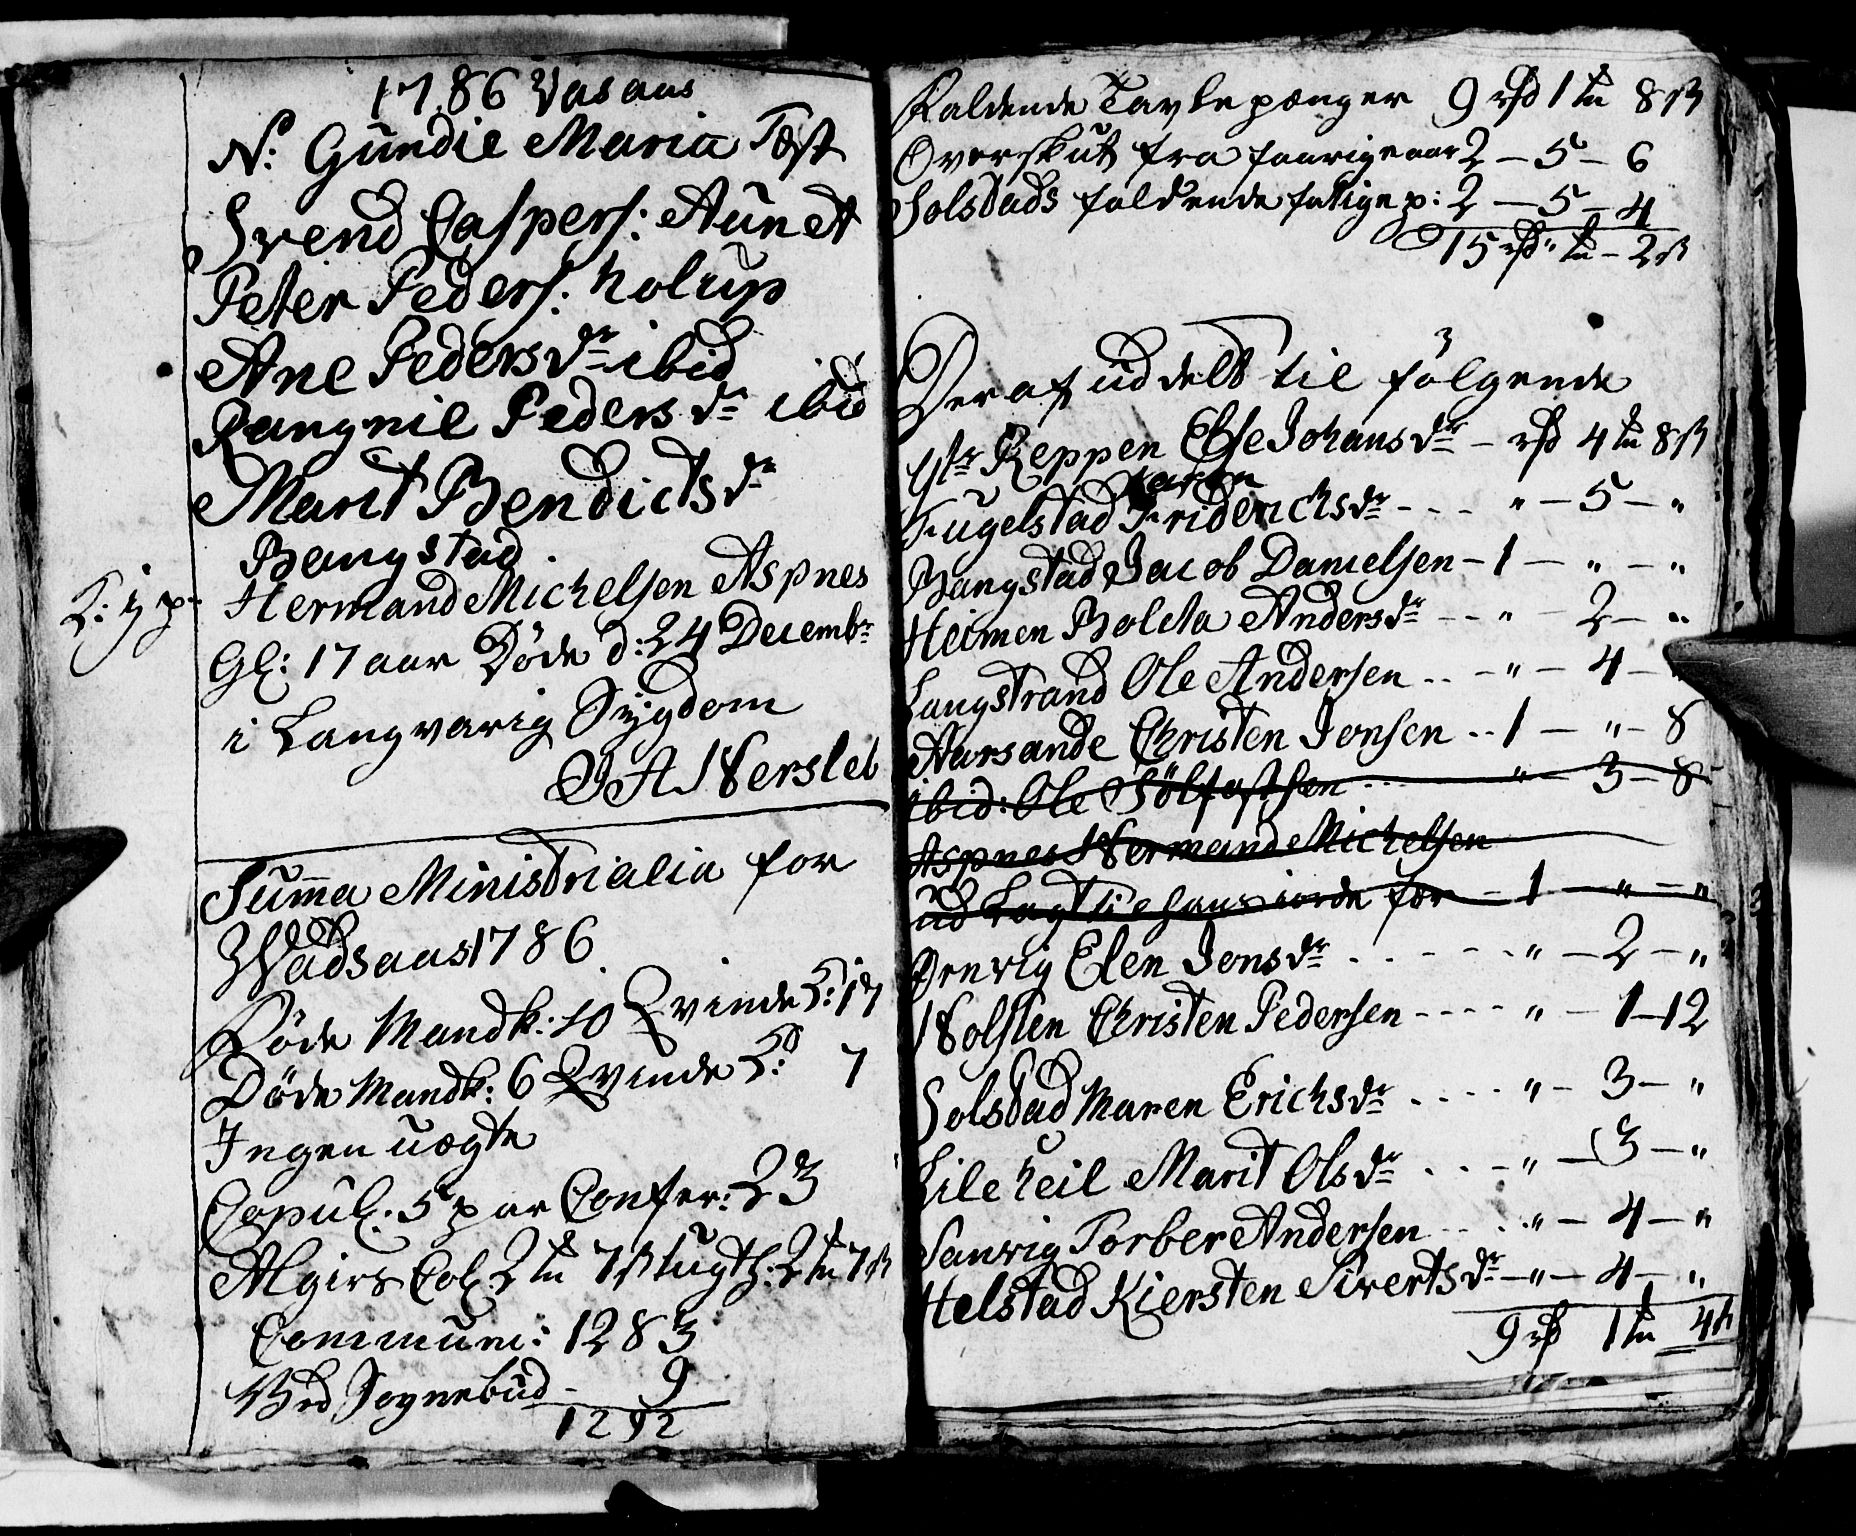 1786 Vasaas
N: Gundie Maria Tøft
Svend Caspers: Aunet
Peter Peders: holup
Ane Pedersdr ibid
Rangnil Pedersdr ibid
Marit Bendictsdr
Bangstad
L: i p: Hermand Michelsen Aspnes
Gl: 17 aar Døde d: 24 Decembr
i Langvarig Sygdom
J A Hersleb
Summa Ministrialia for
Wadsaas 1786
Føde Mandk: 10 Qvinde K: 17
Døde Mandk: 6 Qvinde K: 7
Ingen uægte
Copul: 5 par Confer: 23
Algiers Col: 2 m 7 s tugth: 2 m 7 s
Commun: 1283
Ved Sognebud - 9
1292
Faldende Tavlepænger 9 rd 1 m 8 s
Overskut fra faarige aar 2 - 5 - 6
Solstads faldende fatige p: 2 - 5 - 4
15 rd " m - 2 s
Deraf uddelt til følgende
Ystr Reppen Else Johansdr - rd 4 m 8 s
Karen
Fugelstad Friderichsdr - - - " - 5 - "
Bangstad Jacob Danielsen - 1 - " - "
Heimen Boleta Andersdr - - " - 2 - "
Langstrand Ole Andersen . . - " - 4 - "
Aarsande Christen Jonsen . . 1 - " - 8
ibid: Ole Sølfastsen - - - " - 3 - 8
Aspnes Hermand Michelsen
ud Lagt til hans iorde for - 1 - " - "
Ørnvig Elen Jonsdr . . - - - " - 2 - "
Holsten Christen Pedersen - - - - " - 1 - 12
Solstad Maren Erichsdr . . . . " - 3 - "
Lile heil Marit Olsdr . . . - " - 3 - "
Sanvig Torber Andersen . . . " - 4 - "
Helstad Kiersten Sivertsdr - " - 4 - "
9 rd 1 m 4 s